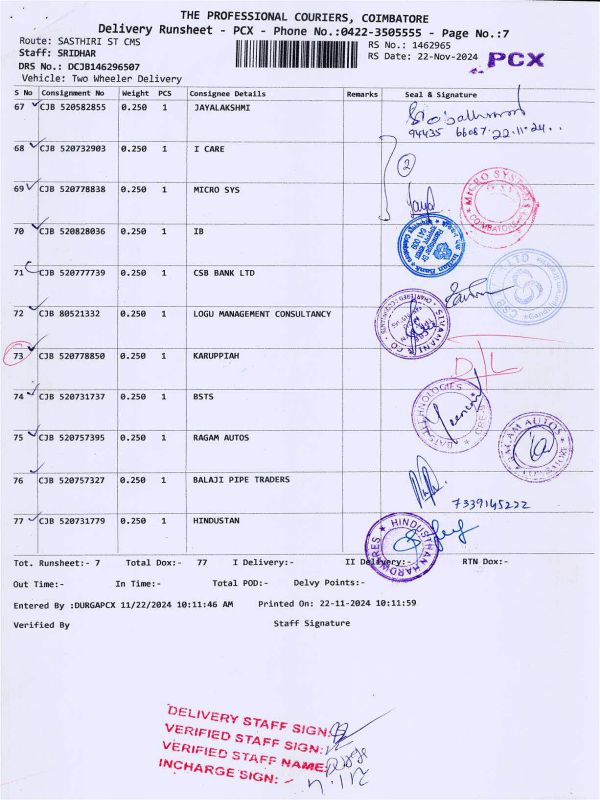 THE PROFESSIONAL COURIERS, COIMBATORE
Delivery Runsheet - PCX - Phone No.:0422-3505555 - Page No.:7
Route: SASTHIRI ST CMS
RS No.: 1462965
Staff: SRIDHAR
RS Date: 22-Nov-2024
PCX
DRS No.: DCJB146296507
Vehicle: Two Wheeler Delivery
S No Consignment No Weight PCS Consignee Details Remarks Seal & Signature
67 CJB 520582855 0.250 1 JAYALAKSHMI
94435 66087 22.11.24
68 CJB 520732903 0.250 1 I CARE
2
69 CJB 520778838 0.250 1 MICRO SYS
MICRO SYSTEMS COIMBATORE
70 CJB 520828036 0.250 1 IB
Indian Bank
71 CJB 520777739 0.250 1 CSB BANK LTD
CSB LTD
72 CJB 80521332 0.250 1 LOGU MANAGEMENT CONSULTANCY
SIVAMANI & CO CHARTERED
73 CJB 520778850 0.250 1 KARUPPIAH
D/L
74 CJB 520731737 0.250 1 BSTS
TECHNOLOGIES
75 CJB 520757395 0.250 1 RAGAM AUTOS
RAGAM AUTOS COIMBATORE
76 CJB 520757327 0.250 1 BALAJI PIPE TRADERS
7339145222
77 CJB 520731779 0.250 1 HINDUSTAN
HINDUSTHAN HARDWARES
Tot. Runsheet:- 7 Total Dox:- 77 I Delivery:- II Delivery:- RTN Dox:-
Out Time:- In Time:- Total POD:- Delvy Points:-
Entered By :DURGAPCX 11/22/2024 10:11:46 AM Printed On: 22-11-2024 10:11:59
Verified By Staff Signature
DELIVERY STAFF SIGN:
VERIFIED STAFF SIGN:
VERIFIED STAFF NAME:
INCHARGE SIGN: -